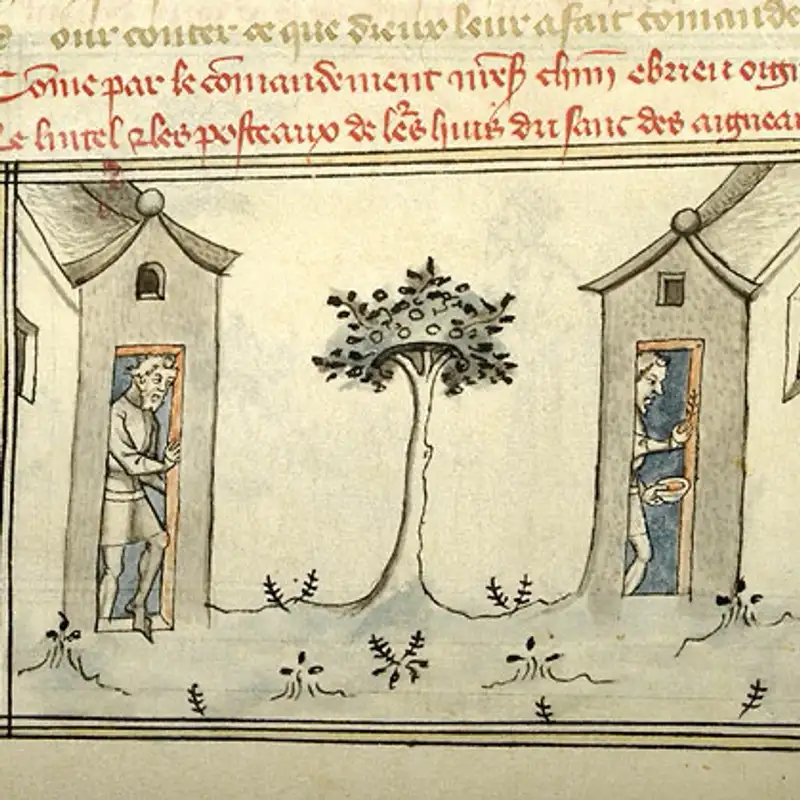 our conter ce que dieux leur a fait comande
Come par le comandement chun ebrieu oigni
le lintel & les posteaux de lers huis du sanc des aigneau